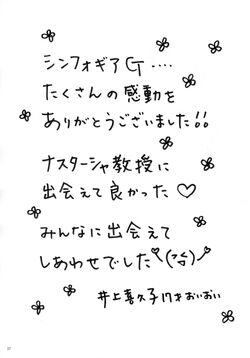 シンフォギアG‥‥
たくさんの感動を
ありがとうございました!!
ナスターシャ教授に
出会えて良かった♡
みんなに出会えて
しあわせでした
井上喜久子17才おいおい